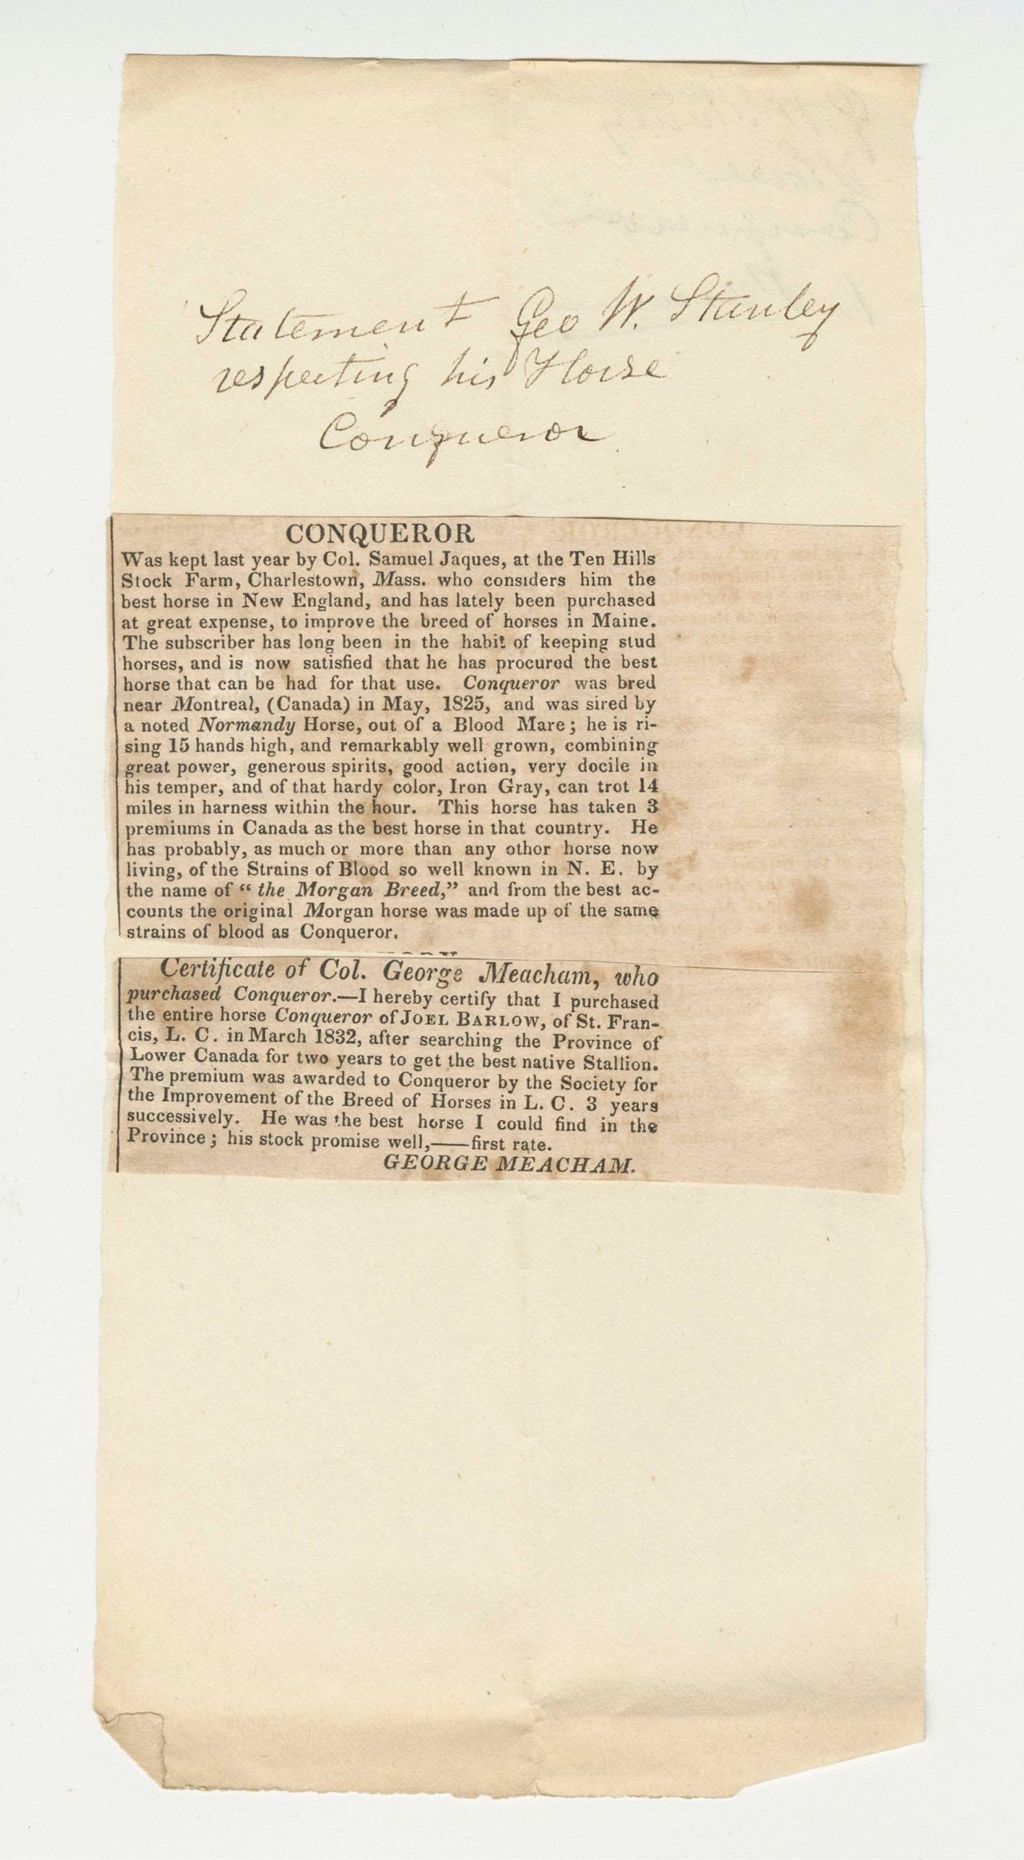 Statement Geo W. Stanley
respecting his Horse
Conqueror
CONQUEROR
Was kept last year by Col. Samuel Jaques, at the Ten Hills
Stock Farm, Charlestown, Mass. who considers him the
best horse in New England, and has lately been purchased
at great expense, to improve the breed of horses in Maine.
The subscriber has long been in the habit of keeping stud
horses, and is now satisfied that he has procured the best
horse that can be had for that use. Conqueror was bred
near Montreal, (Canada) in May, 1825, and was sired by
a noted Normandy Horse, out of a Blood Mare; he is ri-
sing 15 hands high, and remarkably well grown, combining
great power, generous spirits, good action, very docile in
his temper, and of that hardy color, Iron Gray, can trot 14
miles in harness within the hour. This horse has taken 3
premiums in Canada as the best horse in that country. He
has probably, as much or more than any other horse now
living, of the Strains of Blood so well known in N. E. by
the name of "the Morgan Breed," and from the best ac-
counts the original Morgan horse was made up of the same
strains of blood as Conqueror.
Certificate of Col. George Meacham, who
purchased Conqueror.—I hereby certify that I purchased
the entire horse Conqueror of JOEL BARLOW, of St. Fran-
cis, L. C. in March 1832, after searching the Province of
Lower Canada for two years to get the best native Stallion.
The premium was awarded to Conqueror by the Society for
the Improvement of the Breed of Horses in L. C. 3 years
successively. He was the best horse I could find in the
Province; his stock promise well,——first rate.
GEORGE MEACHAM.